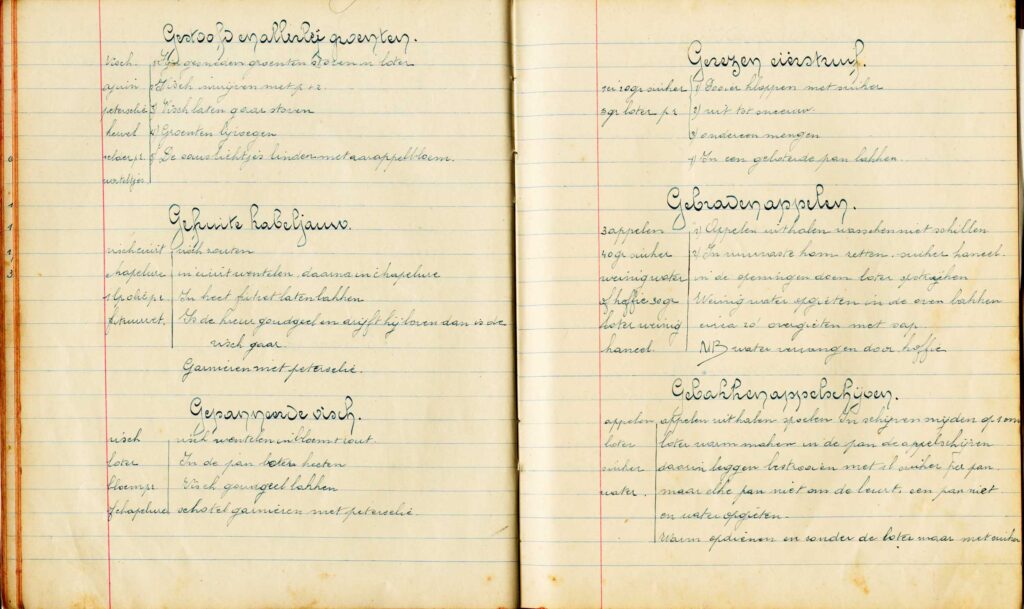 Gestoofd en allerlei groenten.
visch. 1) Fijn gesneden groenten stoven in boter
ajuin 2) Visch inwrijven met p + z.
peterselie 3) Visch laten gaar stoven
kervel 4) Groenten bijvoegen
selder p. 5) De saus lichtjes binden met aardappelbloem.
worteltjes
Gefruite kabeljauw.
visch eiwit visch zouten
chapelure in eiwit wentelen, daarna in chapelure
In heet frituret laten bakken
frituurvet. Is de kleur goudgeel en drijft hij boven dan is de
visch gaar.
Garnieren met peterselie.
Gepanneerde visch.
visch visch wentelen in bloem + zout.
boter In de pan boter heeten
bloem p z Visch goudgeel bakken
of chapelure schotel garnieren met peterselie.
Gerezen eierstruif.
1 ei 20 gr suiker 1) Dooier kloppen met suiker
5 gr boter p z 2) wit tot sneeuw.
3) ondereen mengen
4) In een geboterde pan bakken.
Gebraden appelen.
3 appelen 1) Appelen uithalen wasschen niet schillen
40 gr suiker 2) In vuurvaste kom zetten, suiker kaneel
weinig water in de openingen doen boter opstrijken
of koffie 30 gr Weinig water opgieten in de oven bakken
boter weinig circa 20' overgieten met sap.
kaneel NB water vervangen door koffie
Gebakken appelschijven.
appelen appelen uithalen spoelen In schijven snijden op 1 cm
boter boter warm maken in de pan de appelschijven
suiker daarin leggen bestrooien met sl suiker per pan
water. maar elke pan niet om de beurt, een pan niet
en water opgieten.
Warm opdienen en zonder de boter maar met suiker